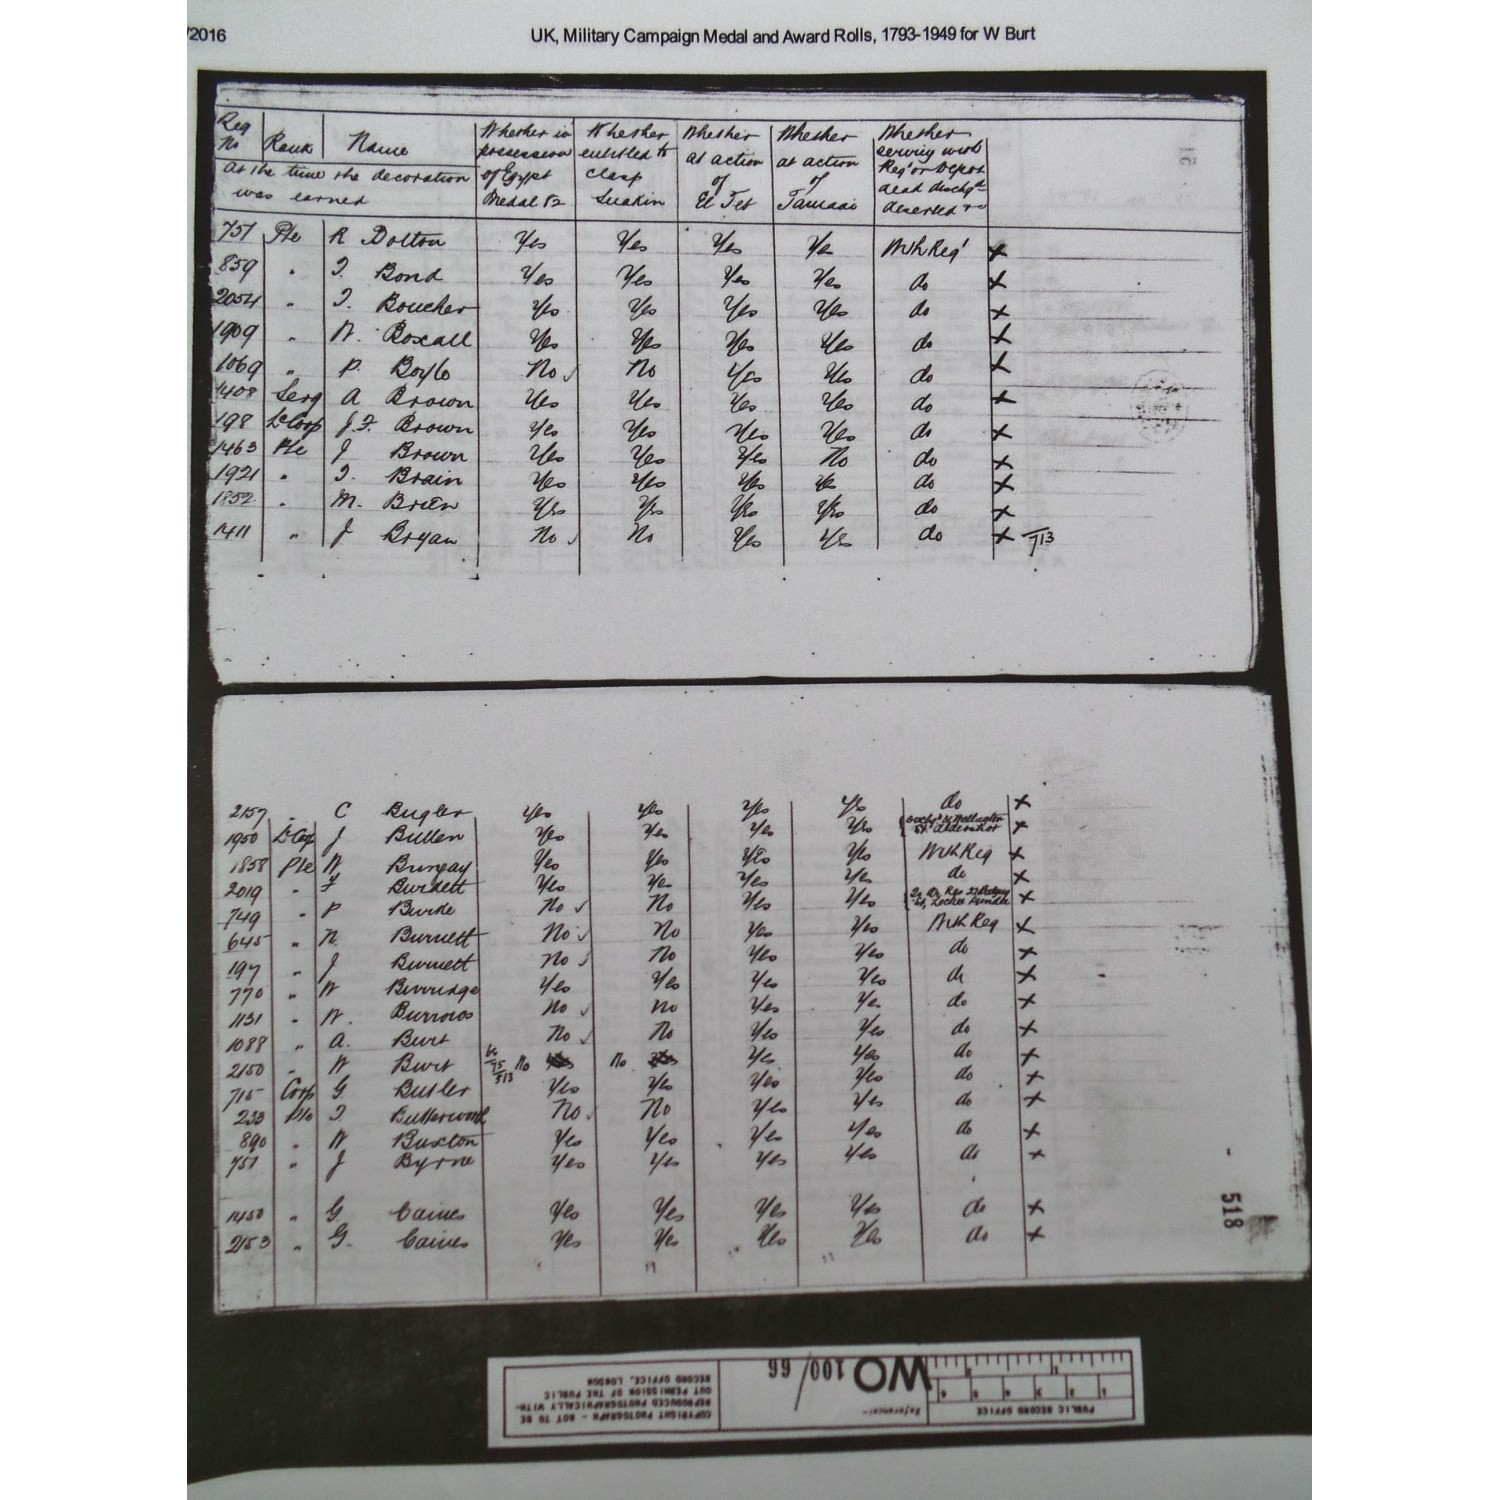 /2016 UK, Military Campaign Medal and Award Rolls, 1793-1949 for W Burt
Reg No Rank Name Whether in possession of Egypt Medal 82 Whether entitled to clasp Suakin Whether at action of El Teb Whether at action of Tamaai Whether serving with Reg' or Depot dead dischgd deserted &c
at the time the decoration was earned
751 Pte R Dolton Yes Yes Yes Yes With Reg' x
859 " J. Bond Yes Yes Yes Yes do x
2054 " J. Boucher Yes Yes Yes Yes do x
1909 " W. Boxall Yes Yes Yes Yes do x
1069 " P. Boylo No ✓ No Yes Yes do x
1408 Serg A Brown Yes Yes Yes Yes do x
198 L Corp J.F. Brown Yes Yes Yes Yes do x
1463 Pte J Brown Yes Yes Yes No do x
1921 " J. Brain Yes Yes Yes Yes do x
1852 " M. Brien Yes Yes Yes Yes do x
1411 " J Bryan No ✓ No Yes Yes do x /713
2157 " C Bugler Yes Yes Yes Yes do x
1950 L Corp J Bullen Yes Yes Yes Yes Wellington St Aldershot x
1858 Pte W Bungay Yes Yes Yes Yes With Reg x
2019 " F Burdett Yes Yes Yes Yes do x
749 " P Burke No ✓ No Yes Yes x
645 " N. Burnett No ✓ No Yes Yes With Reg x
197 " J Burnett No ✓ No Yes Yes do x
770 " W Burridge Yes Yes Yes Yes do x
1131 " W. Burrows No ✓ No Yes Yes do x
1088 " A. Burt No ✓ No Yes Yes do x
2150 " W Burt 60/75/513 No No Yes Yes do x
715 Corp G Butler Yes Yes Yes Yes do x
230 Pte J Butterworth No ✓ No Yes Yes do x
890 " W Buxton Yes Yes Yes Yes do x
751 " J Byrne Yes Yes Yes Yes do x
1450 " G Caines Yes Yes Yes Yes do x
2153 " G. Caines Yes Yes Yes Yes do x
518
PUBLIC RECORD OFFICE
1 2 3 4 5 6
1 2
Reference:-
WO 100/66
COPYRIGHT PHOTOGRAPH - NOT TO BE
REPRODUCED PHOTOGRAPHICALLY WITH-
OUT PERMISSION OF THE PUBLIC
RECORD OFFICE, LONDON